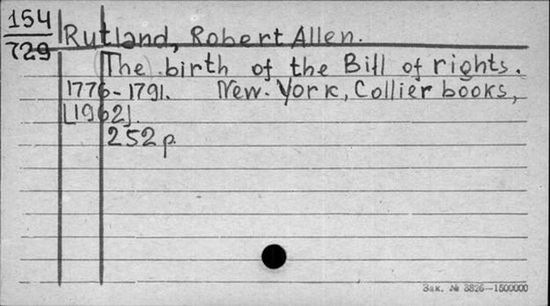 154
729
Rutland, Robert Allen.
The birth of the Bill of rights.
1776-1791. New. York, Collier books,
[1962].
252 p.
Зак. № 3826—1500000